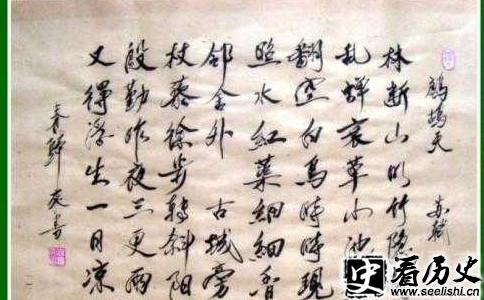 鹧鸪天 苏轼
林断山明竹隐
乱蝉衰草小池
翻空白鸟时时现
照水红蕖细细香
邨舍外 古城旁
杖藜徐步转斜阳
殷勤昨夜三更雨
又得浮生一日凉
史 看历史
www.seelishi.cn